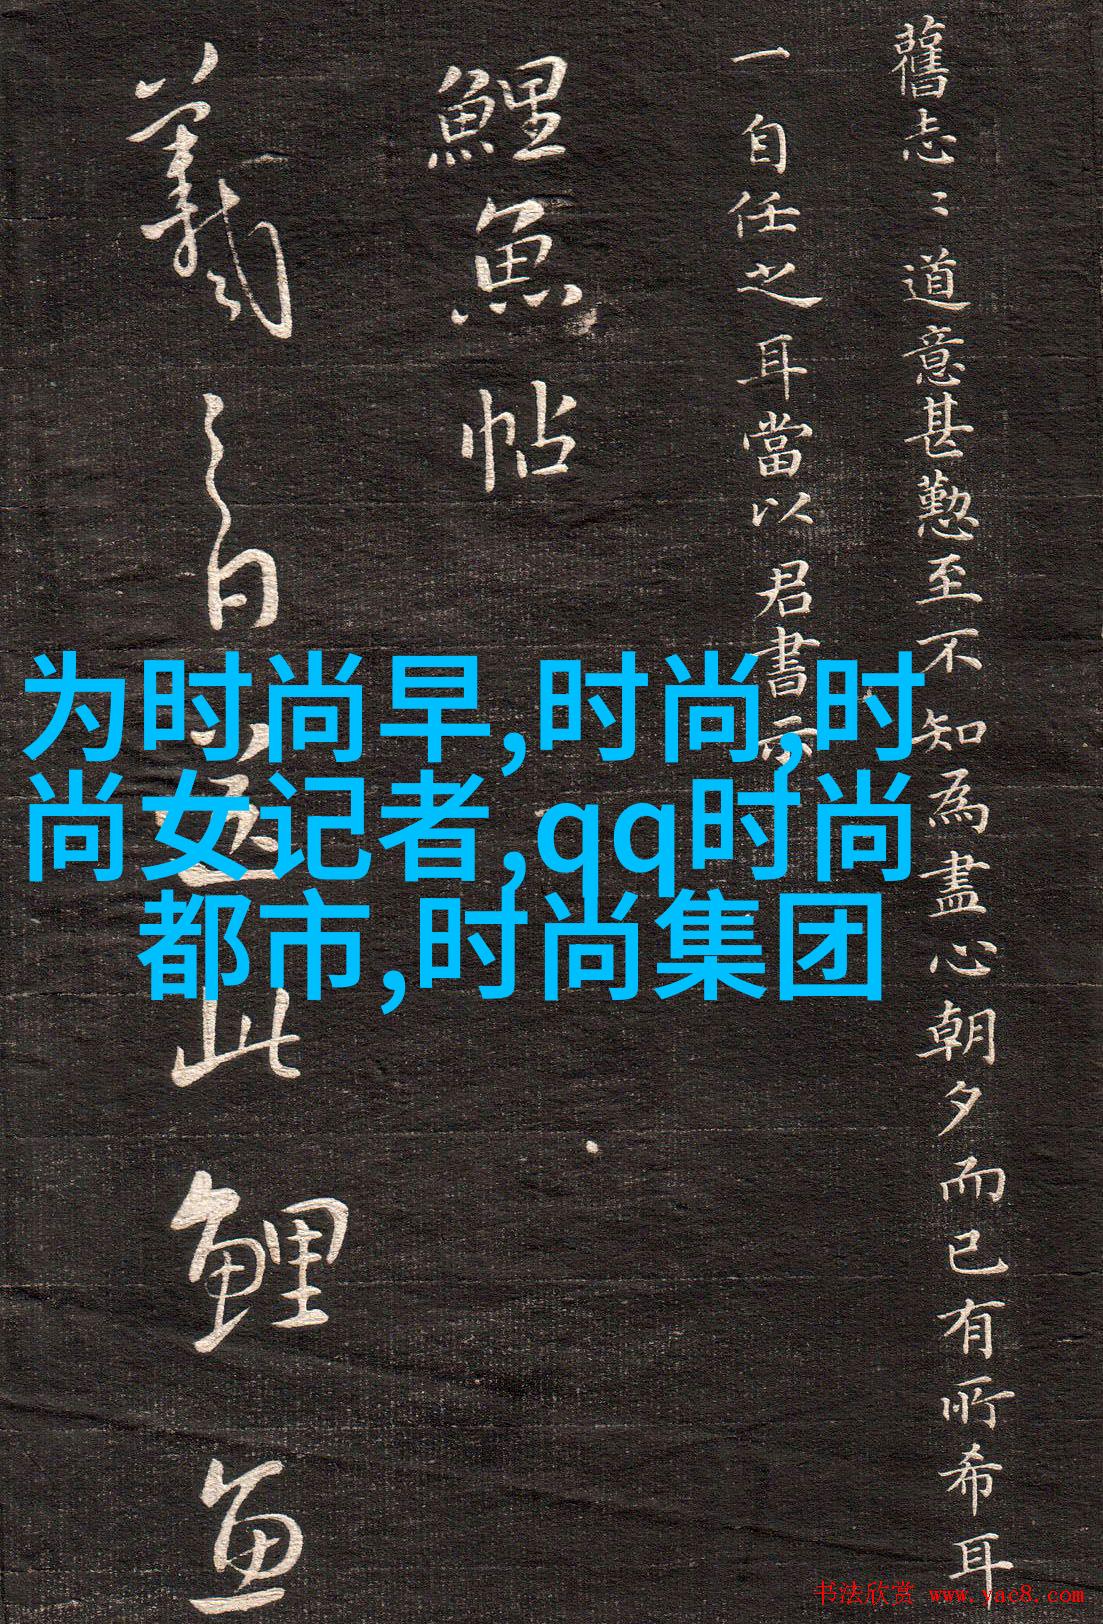 舊志〻道意甚懃至不知為盡心朝夕而已有所希耳
一自任之耳當以君書示
鯉魚帖
羲之白 此鯉魚
为时尚早,时尚,时
尚女记者,qq时尚
都市,时尚集团
书法欣赏 www.yac8.com